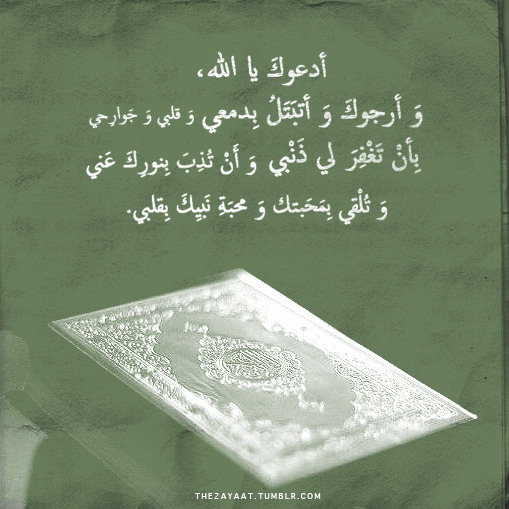 أدعوكَ يا الله،
وَ أرجوكَ وَ أتبَتَلُ بِدمعي وَ قلبي وَ جَوارِحي
بِأنْ تَغْفِرَ لي ذَنْبي وَ أَنْ تُذِبَ بِنورِكَ عَني
وَ تُلْقي بِمَحَبتك وَ محبَةِ نَبيِكَ بِقلبي.
THEZAYAAT.TUMBLR.COM